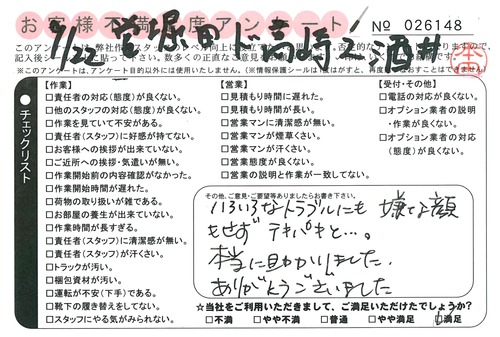 お客様不満足度アンケート
№ 026148
9/22
酒井
【作業】
□責任者の対応(態度)が良くない。
□他のスタッフの対応(態度)が良くない。
□作業を見ていて不安がある。
□責任者(スタッフ)に好感が持てない。
□お客様への挨拶が出来ていない。
□ご近所への挨拶・気遣いが無い。
□作業開始前の内容確認がなかった。
□作業開始時間が遅れた。
□荷物の取り扱いが雑である。
□お部屋の養生が出来ていない。
□作業時間が長すぎる。
□責任者(スタッフ)に清潔感が無い。
□責任者(スタッフ)が汗くさい。
□トラックが汚い。
□梱包資材が汚い。
□運転が不安(下手)である。
□靴下の履き替えをしてない。
□スタッフにやる気がみられない。
チェックリスト
【営業】
□見積もり時間に遅れた。
□見積もり時間が長い。
□営業マンに清潔感が無い。
□営業マンが煙草くさい。
□営業マンが汗くさい。
□営業態度が良くない。
□営業の説明と作業が一致してない。
【受付・その他】
□電話の対応が良くない。
□オプション業者の説明・作業が良くない。
□オプション業者の対応(態度)が良くない。
その他、ご意見・ご要望等ありましたらお書き下さい。
いろいろなトラブルにも 嫌な顔
もせず テキパキと…。
本当に助かりました。
ありがとうございました
☆当社をご利用いただきまして、ご満足いただけたでしょうか?
□不満 □やや不満 □普通 □やや満足 □満足